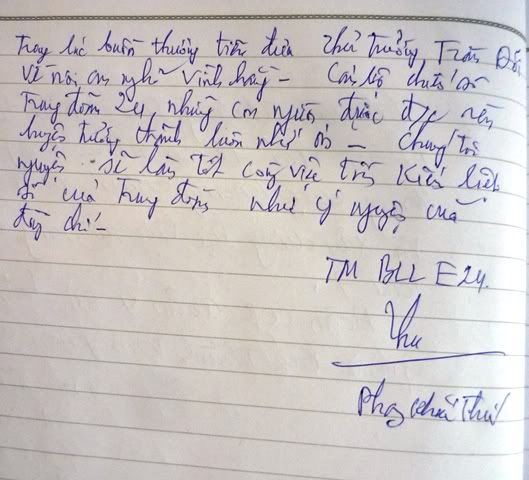 Trong lúc buồn thương tiễn đưa Thủ trưởng Trần Đối
về nơi an nghỉ vĩnh hằng - Cán bộ chiến sĩ
Trung đoàn 24, những con người được đ/c rèn
luyện trưởng thành luôn nhớ ơn - Chúng tôi
nguyện sẽ làm tốt công việc tri
của Trung đoàn như ý nguyện của
đồng chí -
TM BLL E24.
Thu